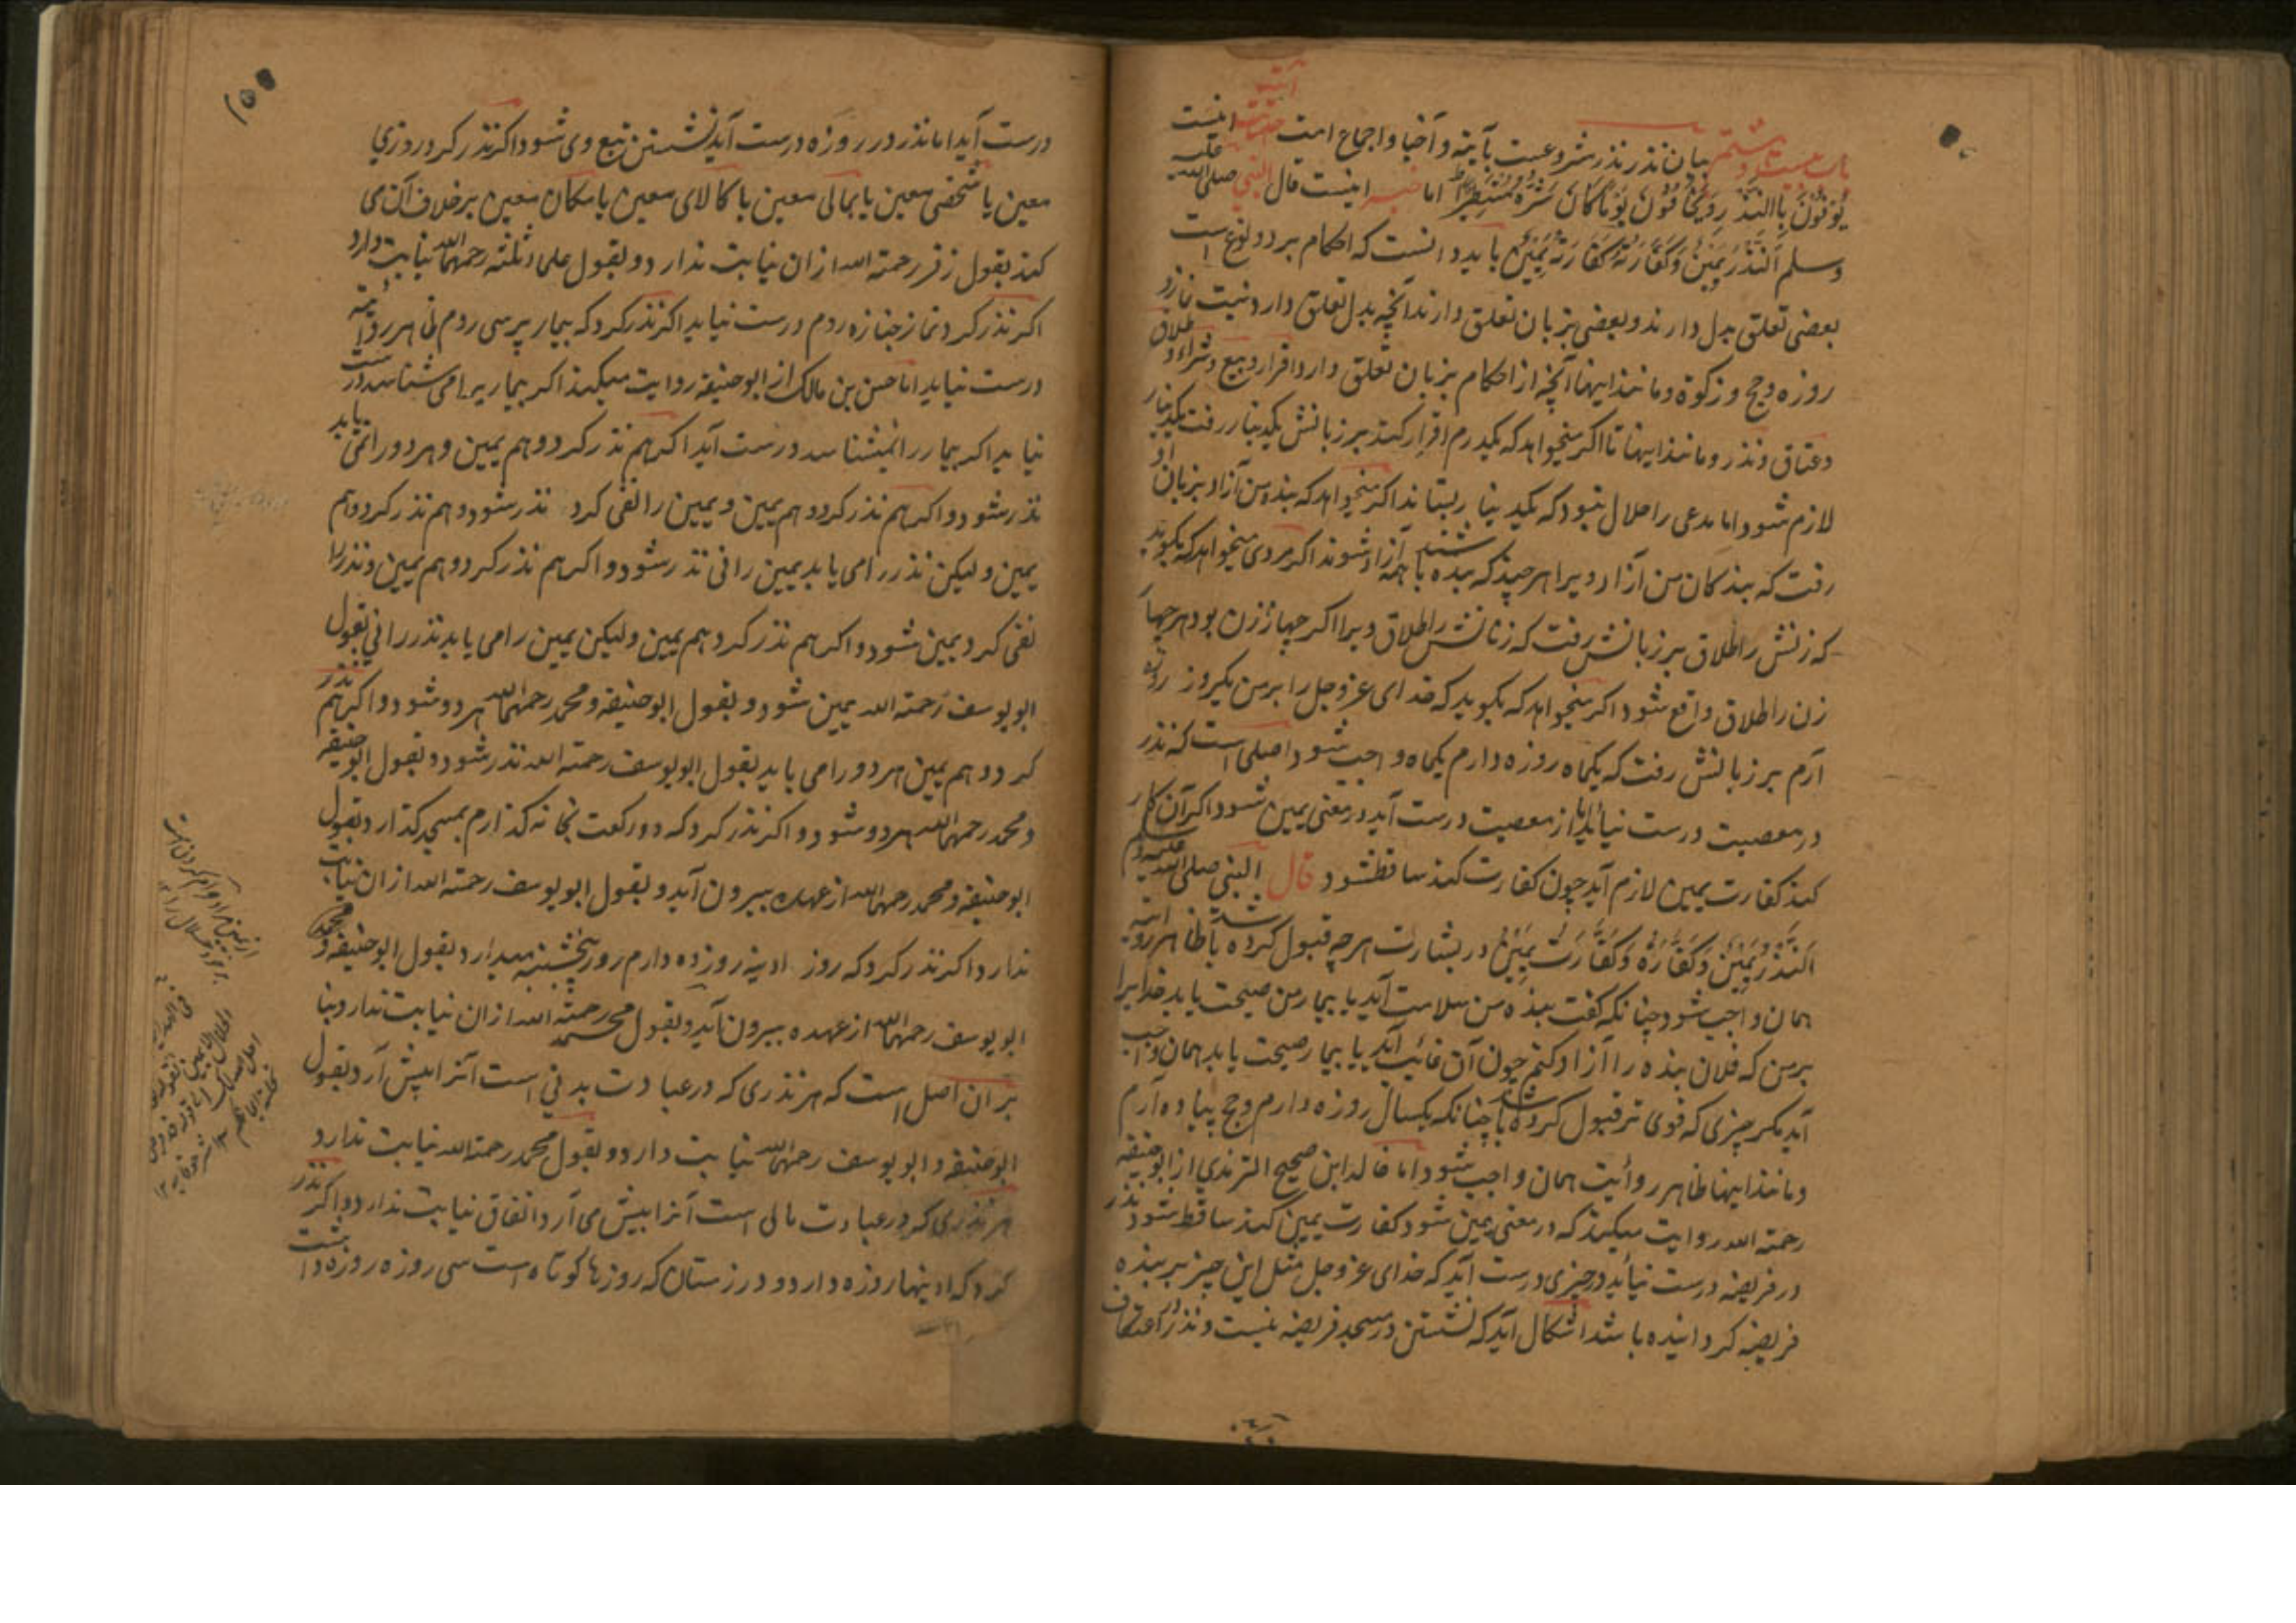 باب بیست و هشتم بیان نذر نذر مشروعست بآیة و آخبا و اجماع امت اینست
یُوفُونَ بِاالنَّذْرِ وَیَخَافُونَ یَوْمًا کَانَ شَرُّهُ مُسْتَطِیرًا اما خبر اینست قال النبی صلی الله علیه
وسلم اَلنَّذْرُ یَمِینٌ وَکَفَّارَتُهُ کَفَّارَةُ یَمِینٍ باید دانست که احکام بر دو نوع است
بعضی تعلق بدل دارند و بعضی بزبان تعلق دارند آنچه بدل تعلق دارد نیت نماز و
روزه و حج و زکوة و مانند اینها آنچه از احکام بزبان تعلق دارد اقرار و بیع و شراء و طلاق
و عتاق و نذر و مانند اینها تا اکر میخواهد که یکدرم اقرار کند بر زبانش یکدینار رفت یکدینار
لازم شود اما مدعی را حلال نبود که یکدینار بستاند اکر میخواهد که بنده من آزاد بزبان او
رفت که بندکان من آزاد ویرا هرچند که بنده باشند همه آزاد شوند اکر مردی میخواهد که بکوید
که زنش را طلاق بر زبانش رفت که زنانش را طلاق ویرا اکر چهار زن بود هر چهار
زن را طلاق واقع شود اکر میخواهد که بکوید که خدای عزوجل را بر من یکروز روزه
آرم بر زبانش رفت که یکماه روزه دارم یکماه واجب شود اصلی است که نذر
در معصیت درست نیاید اما از معصیت درست آید در معنی یمین شود اکر آن کار
کند کفارت یمین لازم آید چون کفارت کند ساقط شود قال النبی صلی الله علیه وسلم
اَلنَّذْرُ یَمِینٌ وَکَفَّارَتُهُ وَکَفَّارَتُ یَمِینٍ در بشارت هرچه قبول کرده باشد ظاهر روایة
همان واجب شود چنانکه کفت بنده من سلامت آید یا بیمار من صحت یابد خدایرا
بر من که فلان بنده را آزاد کنم چون آن غائب آید یا بیمار صحت یابد همان واجب
آید مکر چیزی که قوی تر قبول کرده باشد چنانکه یکسال روزه دارم و حج پیاده آرم
و مانند اینها ظاهر روایت همان واجب شود اما خالد ابن صحیح الترمذی از ابوحنیفه
رحمته الله روایت میکند که در معنی یمین شود کفارت یمین کند ساقط شود نذر
در فریضه درست نیاید در چیزی درست آید که خدای عزوجل مثل این چیز بر بنده
فریضه کردانیده باشد اشکال آید که نشستن در مسجد فریضه نیست و نذر در اعتکاف
درست آید اما نذر در روزه درست آید نشستن تبع وی شود اکر نذر کرد در روزی
معین یا شخصی معین یا بمالی معین یا کالای معین یا مکان معین بر خلاف آن می
کند بقول زفر رحمته الله از ان نیابت ندارد و بقول علمای ثلثه رحمهما الله نیابت دارد
اکر نذر کرد نماز جنازه روم درست نیاید اکر نذر کرد که بیمار پرسی روم فی ظاهر روایة
درست نیاید اما حسن بن مالک از ابوحنیفه روایت میکند اکر بیمار یرا می شناسد درست
نیاید اکر بیمار را نمیشناسد درست آید اکر هم نذر کرد و هم یمین و هر دو را نمی یابد
نذر شود و اکر هم نذر کرد و هم یمین و یمین را نفی کرد نذر شود و هم نذر کرد و هم
یمین و لیکن نذر را می یابد یمین را نی نذر شود و اکر هم نذر کرد و هم یمین و نذر را
نفی کرد یمین شود و اکر هم نذر کرد و هم یمین ولیکن یمین را می یابد نذر را نی بقول
ابویوسف رحمته الله یمین شود و بقول ابوحنیفه و محمد رحمهما الله هر دو شود و اکر هم نذر
کرد و هم یمین هر دو را می یابد بقول ابویوسف رحمته الله نذر شود و بقول ابوحنیفه
و محمد رحمهما الله هر دو شود و اکر نذر کرد که دو رکعت بخانه کذارم بمسجد کذارد بقول
ابوحنیفه و محمد رحمهما الله از عهده بیرون آید و بقول ابویوسف رحمته الله از ان نیابت
ندارد اکر نذر کرد که روز ادینه روزه دارم روز پنجشنبه میدارد بقول ابوحنیفه و
ابویوسف رحمهما الله از عهده بیرون آید و بقول محمد رحمته الله از ان نیابت ندارد بنا
بر ان اصل است که هر نذری که در عبادت بدنی است آنرا پیش آرد بقول
ابوحنیفه و ابویوسف رحمهما الله نیابت دارد و بقول محمد رحمته الله نیابت ندارد
هر نذری که در عبادت مالی است آنرا پیش می آرد اتفاق نیابت ندارد و اکر نذر
کرد که ادینها روزه دارد و در زمستان که روزها کوتاه است سی روزه روزه داشت